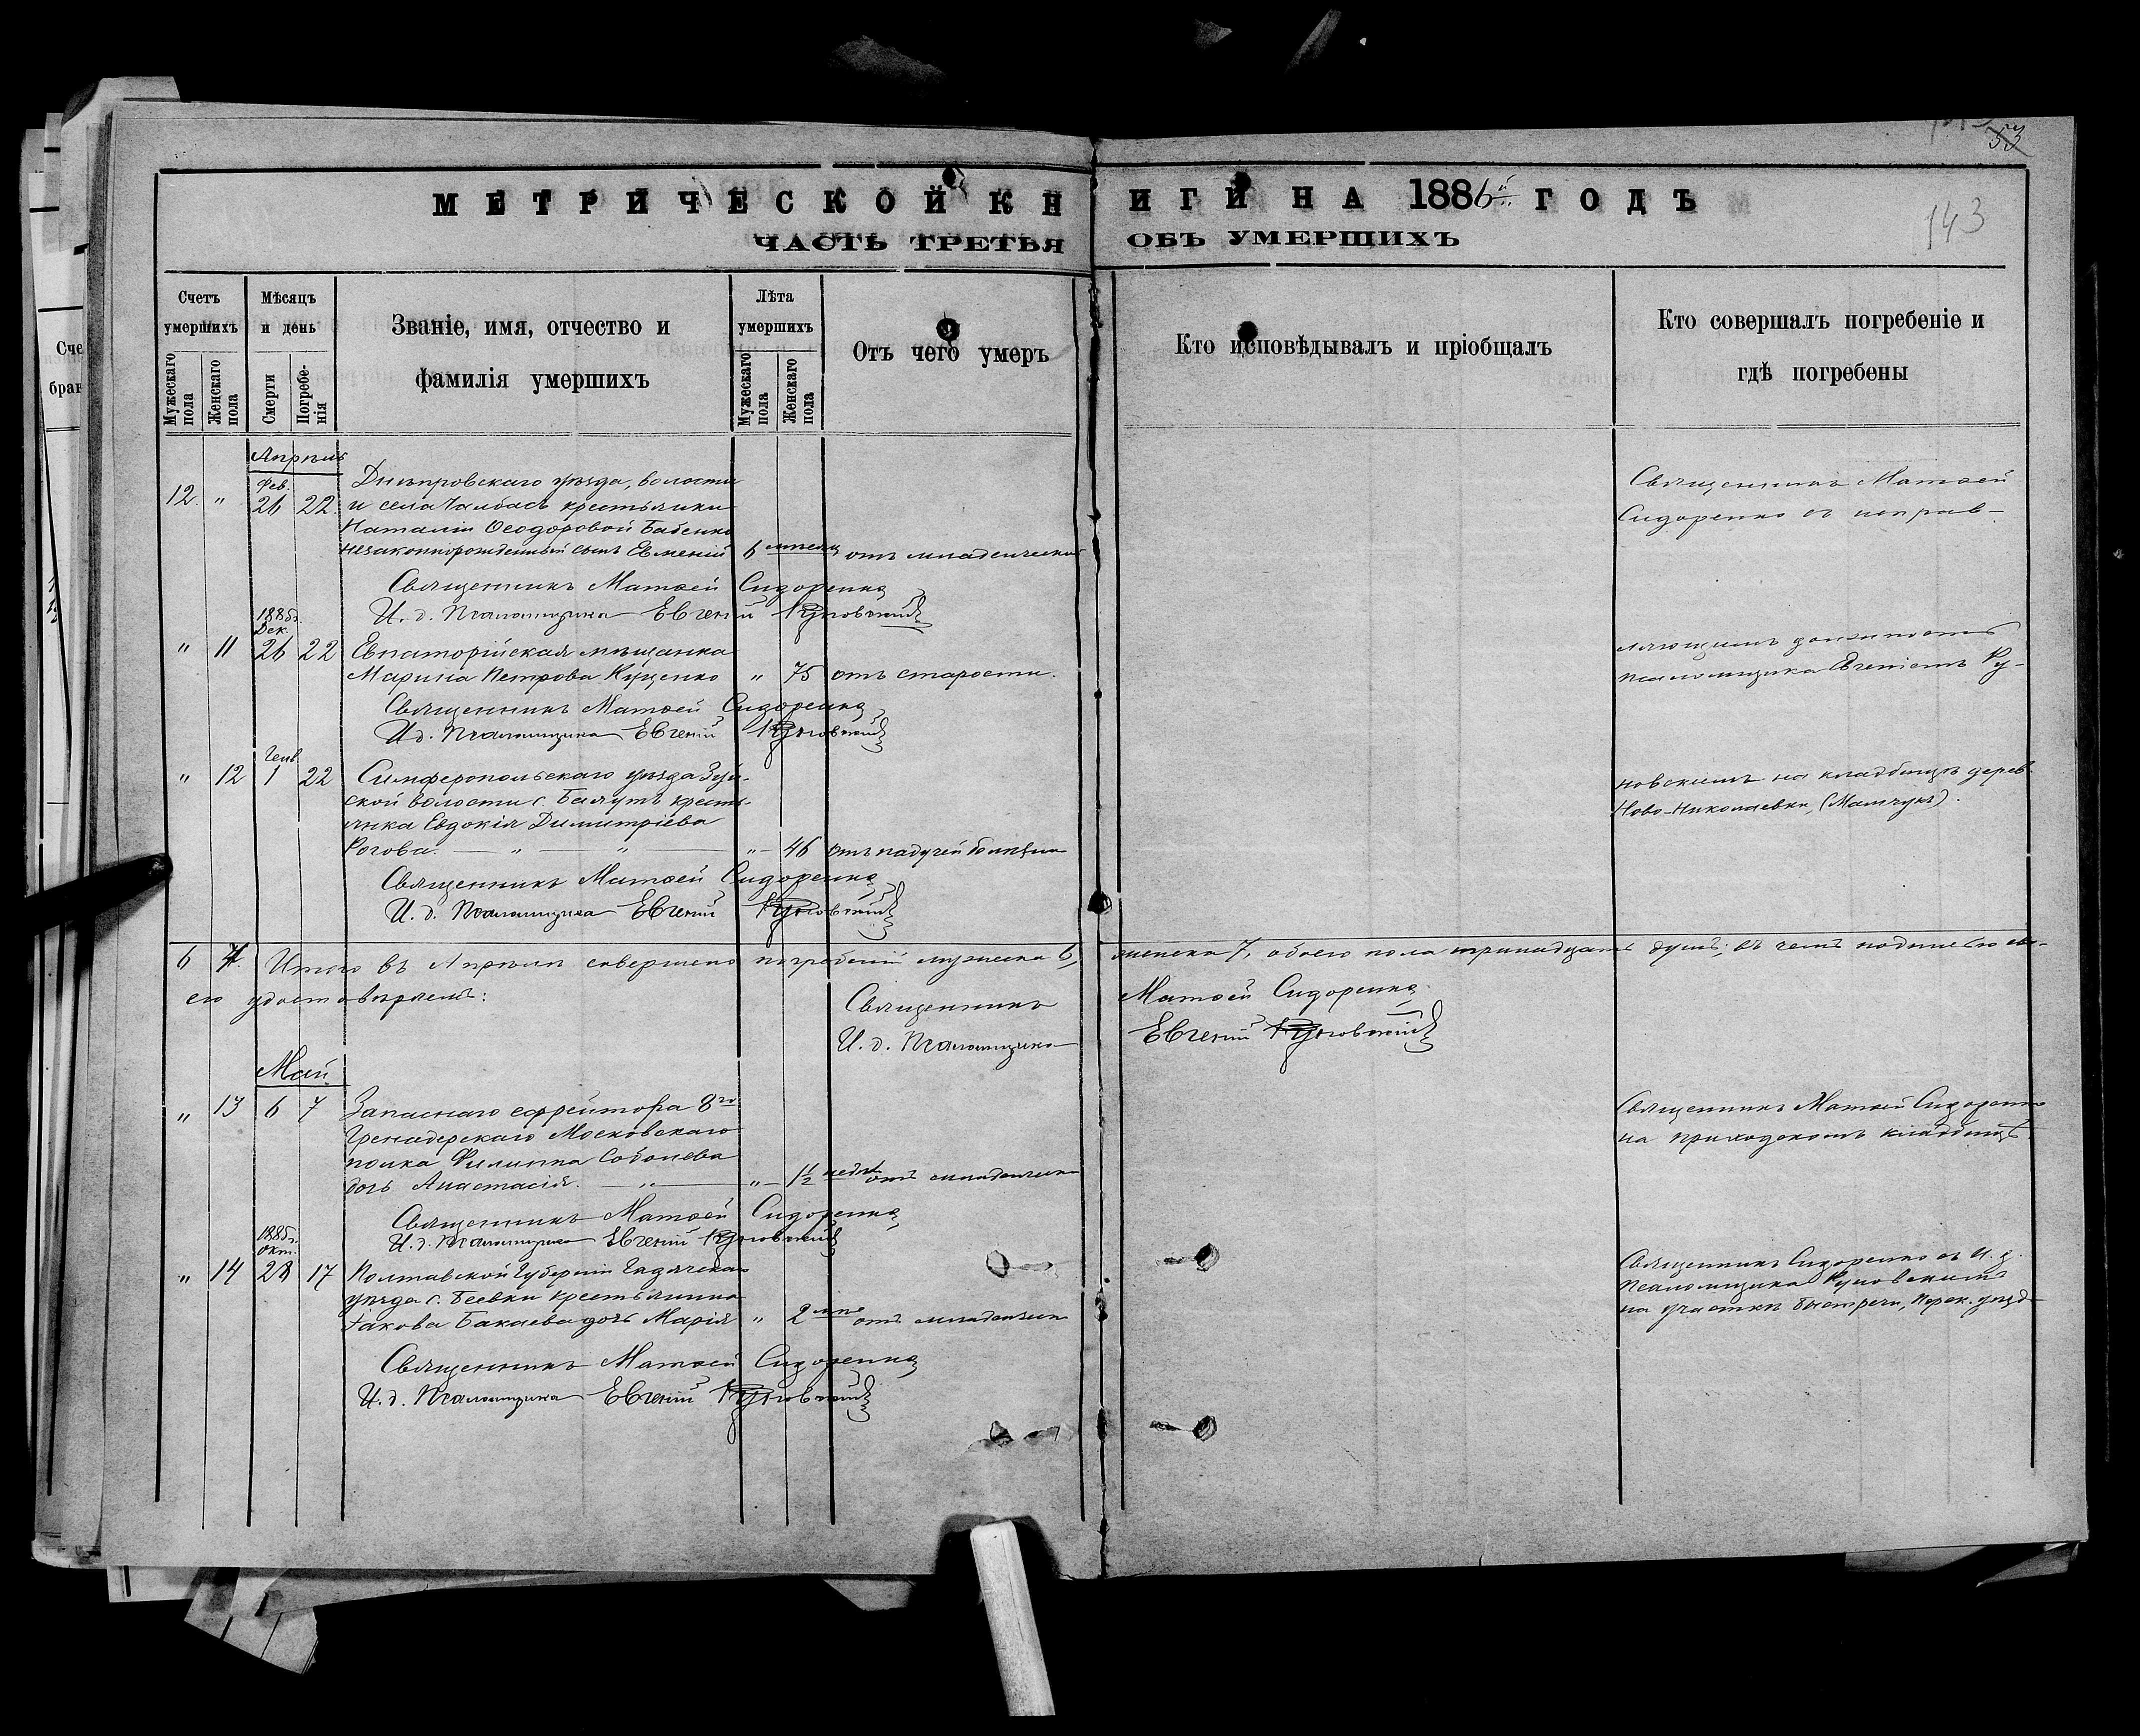 53
143
МЕТРИЧЕСКОЙ КНИГИ НА 1886й ГОДЪ
ЧАСТЬ ТРЕТЬЯ ОБЪ УМЕРШИХЪ
Счетъ умершихъ
Мѣсяцъ и день
Званіе, имя, отчество и фамилія умершихъ
Лѣта умершихъ
Отъ чего умеръ
Кто исповѣдывалъ и пріобщалъ
Кто совершалъ погребеніе и гдѣ погребены
Мужескаго пола
Женскаго пола
Смерти
Погребенія
Мужескаго пола
Женскаго пола
Сче
брак
Апрѣль
Фев.
12. " 26 22.
Днѣпровскаго уѣзда, волости
и села Чалбасъ крестьянки
Наталіи Ѳеодоровой Бабенко
незаконнорожденный сынъ Евменій 6 мѣсяц отъ младенческой
Священникъ Матѳей
Сидоренко съ исправ-
Священникъ Матѳей Сидоренко
И. д. Псаломщика Евгеній Руновскій
1885г.
Дек.
" 11 26 22
Евпаторійская мѣщанка
Марина Петрова Куценко " 75 отъ старости.
ляющимъ должность
псаломщика Евгеніемъ Ру-
Священникъ Матѳей Сидоренко
И. д. Псаломщика Евгеній Руновскій
Генв.
" 12 1 22
Симферопольскаго уѣзда Зуй-
ской волости с. крестья-
янка Евдокія Димитріева
Рогова. — " — " — "- 46 отъ падучей болѣзни
новскимъ на кладбищѣ дерев.
Ново-Николаевки, (Мамчукъ).
Священникъ Матѳей Сидоренко
И. д. Псаломщика Евгеній Руновскій
6 7. Итого въ Апрѣлѣ совершено погребеній мужеска 6, женска 7, обоего пола тринадцать душъ; въ чемъ подписью сво-
ею удостовѣряемъ:
Священникъ Матѳей Сидоренко
И. д. Псаломщика Евгеній Руновскій
Май
" 13 6 7
Запаснаго ефрейтора 8го
Гренадерскаго Московскаго
полка Филиппа Соболева
дочь Анастасія. — " — "- 1½ недѣл отъ младенческ
Священникъ Матѳей Сидоренко
на приходскомъ кладбищѣ.
Священникъ Матѳей Сидоренко
И. д. Псаломщика Евгеній Руновскій
1885г.
Окт.
" 14 28 17
Полтавской Губерніи Гадячскаго
уѣзда с. Беевки крестьянина
Іакова Бакаева дочь Марія " 2 отъ младенческ
Священникъ Сидоренко съ И. д.
Псаломщика Руновскимъ
на участкѣ Перек. уѣзд
Священникъ Матѳей Сидоренко
И. д. Псаломщика Евгеній Руновскій